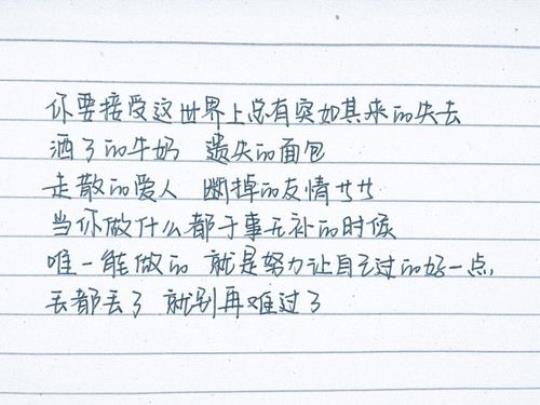 你要接受这世界上总有突如其来的失去
洒了的牛奶 遗失的面包
走散的爱人 断掉的友情
当你做什么都于事无补的时候
唯一能做的 就是努力让自己过的好一点
丢都丢了 就别再难过了